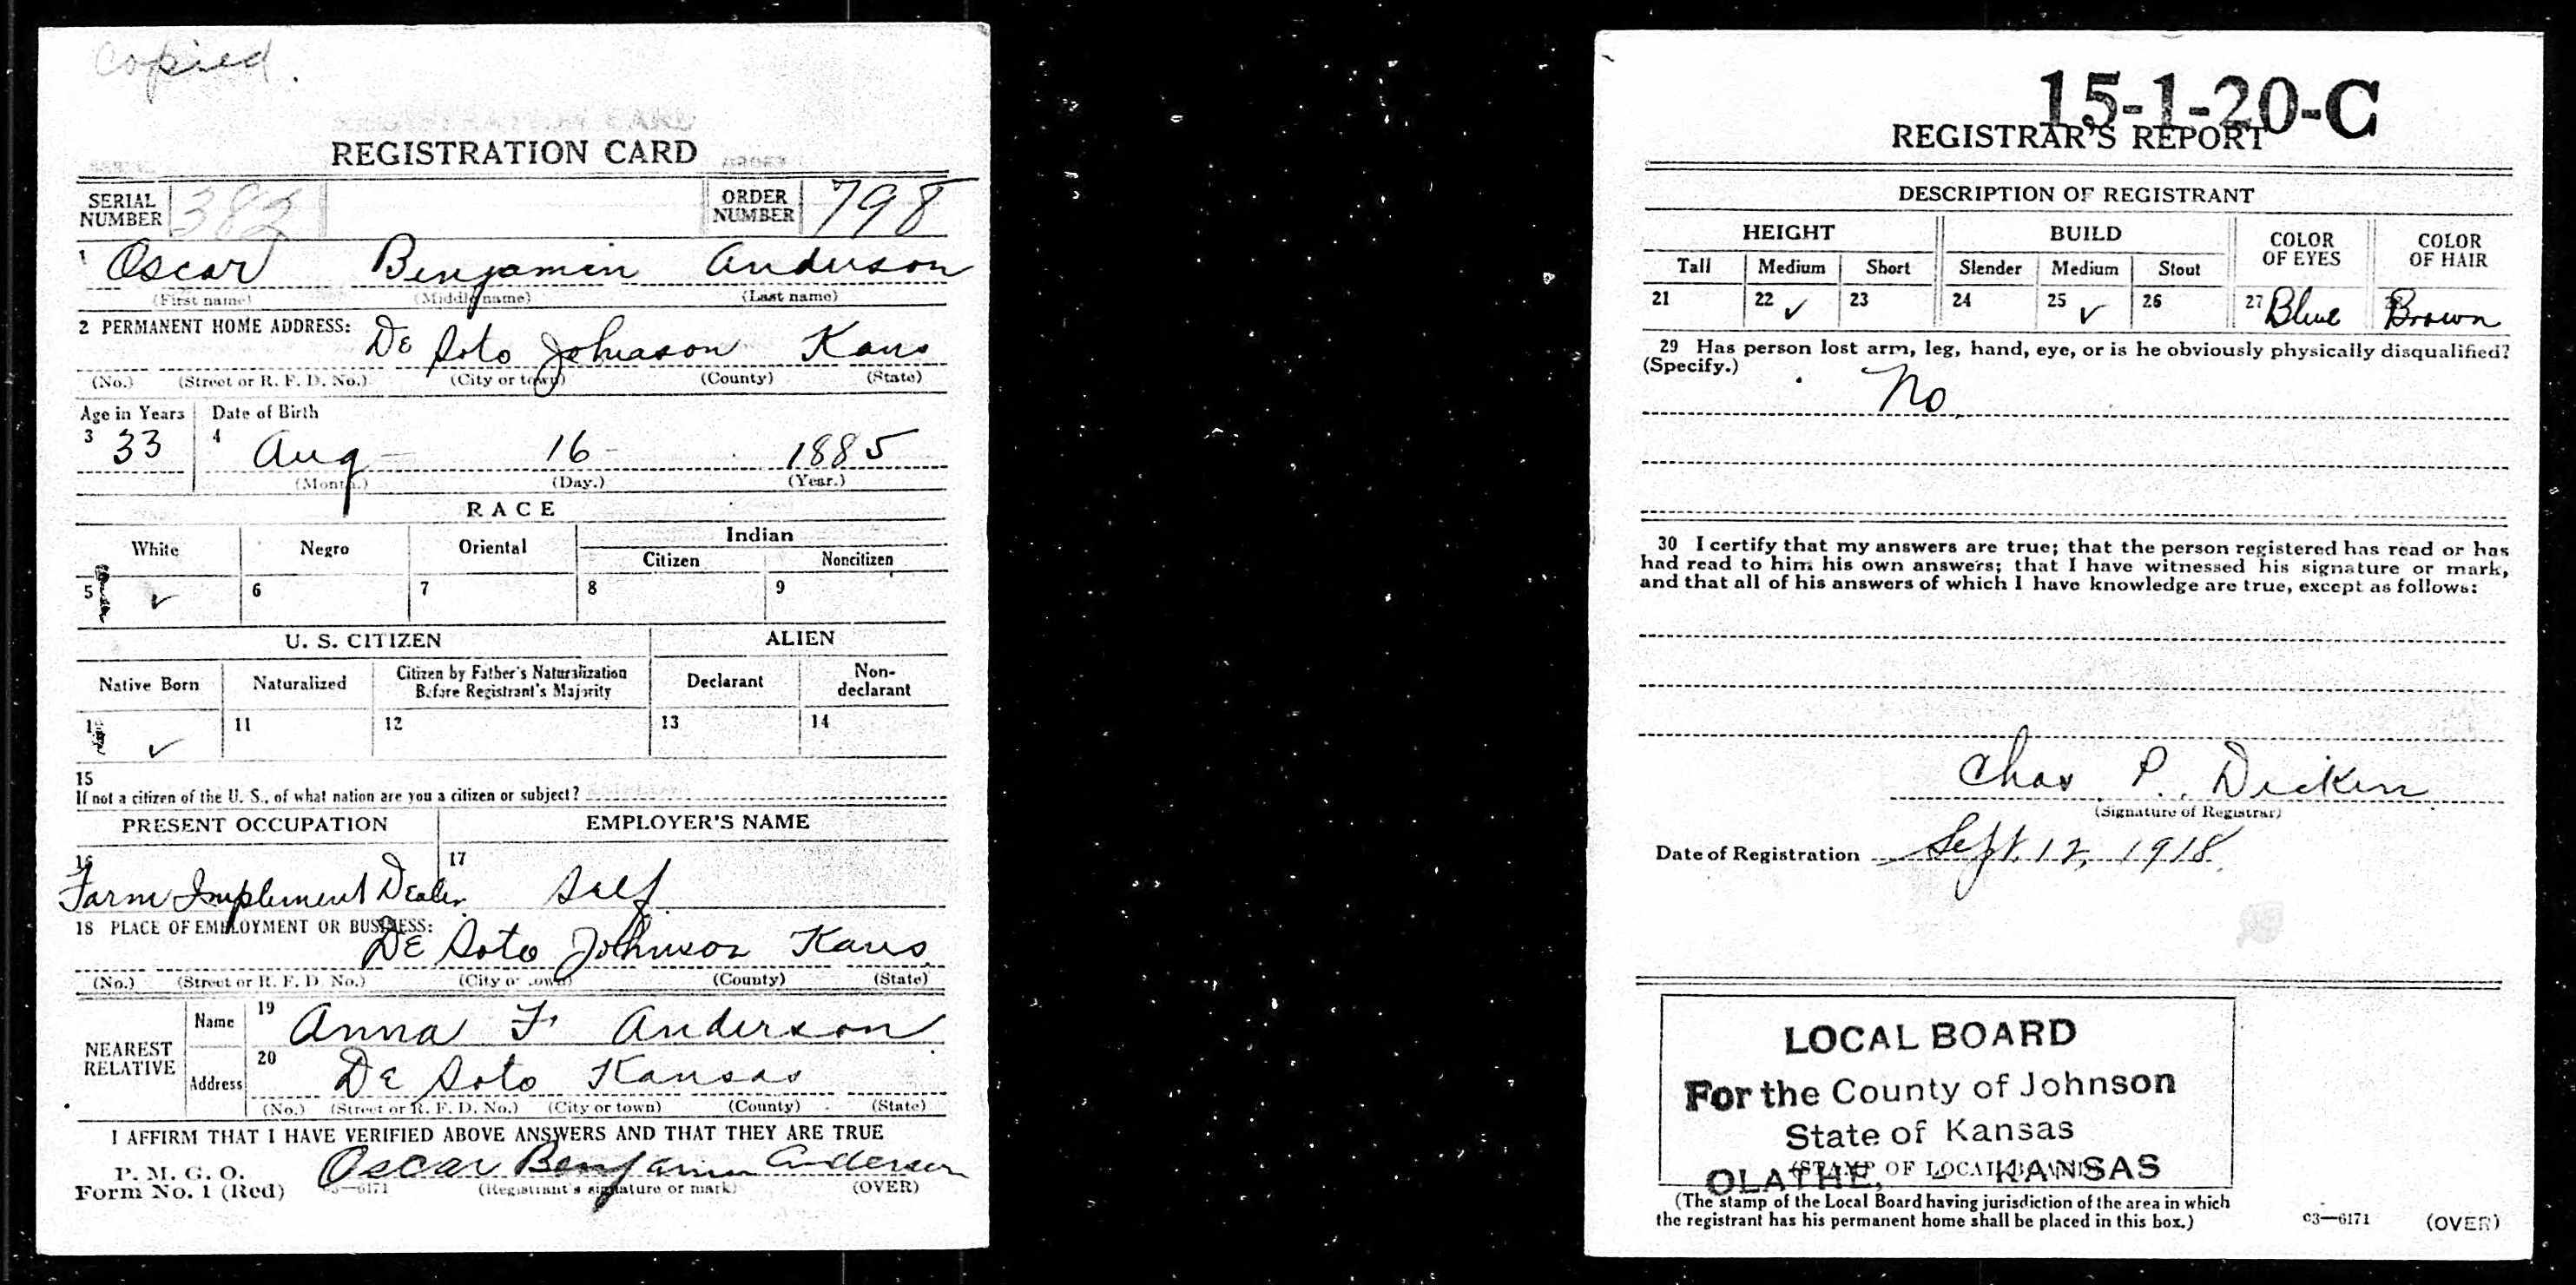 Copied.
REGISTRATION CARD
SERIAL NUMBER 382 ORDER NUMBER 798
1 Oscar Benjamin Anderson
(First name) (Middle name) (Last name)
2 PERMANENT HOME ADDRESS:
De Soto Johnson Kans
(No.) (Street or R. F. D. No.) (City or town) (County) (State)
Age in Years Date of Birth
3 33 4 Aug- 16- 1885
(Month.) (Day.) (Year.)
RACE
White Negro Oriental Indian
Citizen Noncitizen
5 ✓ 6 7 8 9
U. S. CITIZEN ALIEN
Native Born Naturalized Citizen by Father's Naturalization Before Registrant's Majority Declarant Non-declarant
✓ 11 12 13 14
15
If not a citizen of the U. S., of what nation are you a citizen or subject?
PRESENT OCCUPATION EMPLOYER'S NAME
16 17
Farm Implement Dealer Self
18 PLACE OF EMPLOYMENT OR BUSINESS:
De Soto Johnson Kans.
(No.) (Street or R. F. D. No.) (City or town) (County) (State)
NEAREST RELATIVE
Name 19 Anna F. Anderson
Address 20 De Soto Kansas
(No.) (Street or R. F. D. No.) (City or town) (County) (State)
I AFFIRM THAT I HAVE VERIFIED ABOVE ANSWERS AND THAT THEY ARE TRUE
P. M. G. O.
Form No. 1 (Red) Oscar Benjamin Anderson
03—6171 (Registrant's signature or mark) (OVER)
15-1-20-C
REGISTRAR'S REPORT
DESCRIPTION OF REGISTRANT
HEIGHT BUILD COLOR OF EYES COLOR OF HAIR
Tall Medium Short Slender Medium Stout
21 22 ✓ 23 24 25 ✓ 26 27 Blue Brown
29 Has person lost arm, leg, hand, eye, or is he obviously physically disqualified?
(Specify.)
No.
30 I certify that my answers are true; that the person registered has read or has
had read to him his own answers; that I have witnessed his signature or mark,
and that all of his answers of which I have knowledge are true, except as follows:
Chas. P. Dicken
(Signature of Registrar)
Date of Registration Sept. 12, 1918.
LOCAL BOARD
For the County of Johnson
State of Kansas
(STAMP OF LOCAL BOARD)
OLATHE, KANSAS
(The stamp of the Local Board having jurisdiction of the area in which
the registrant has his permanent home shall be placed in this box.)
03—6171 (OVER)